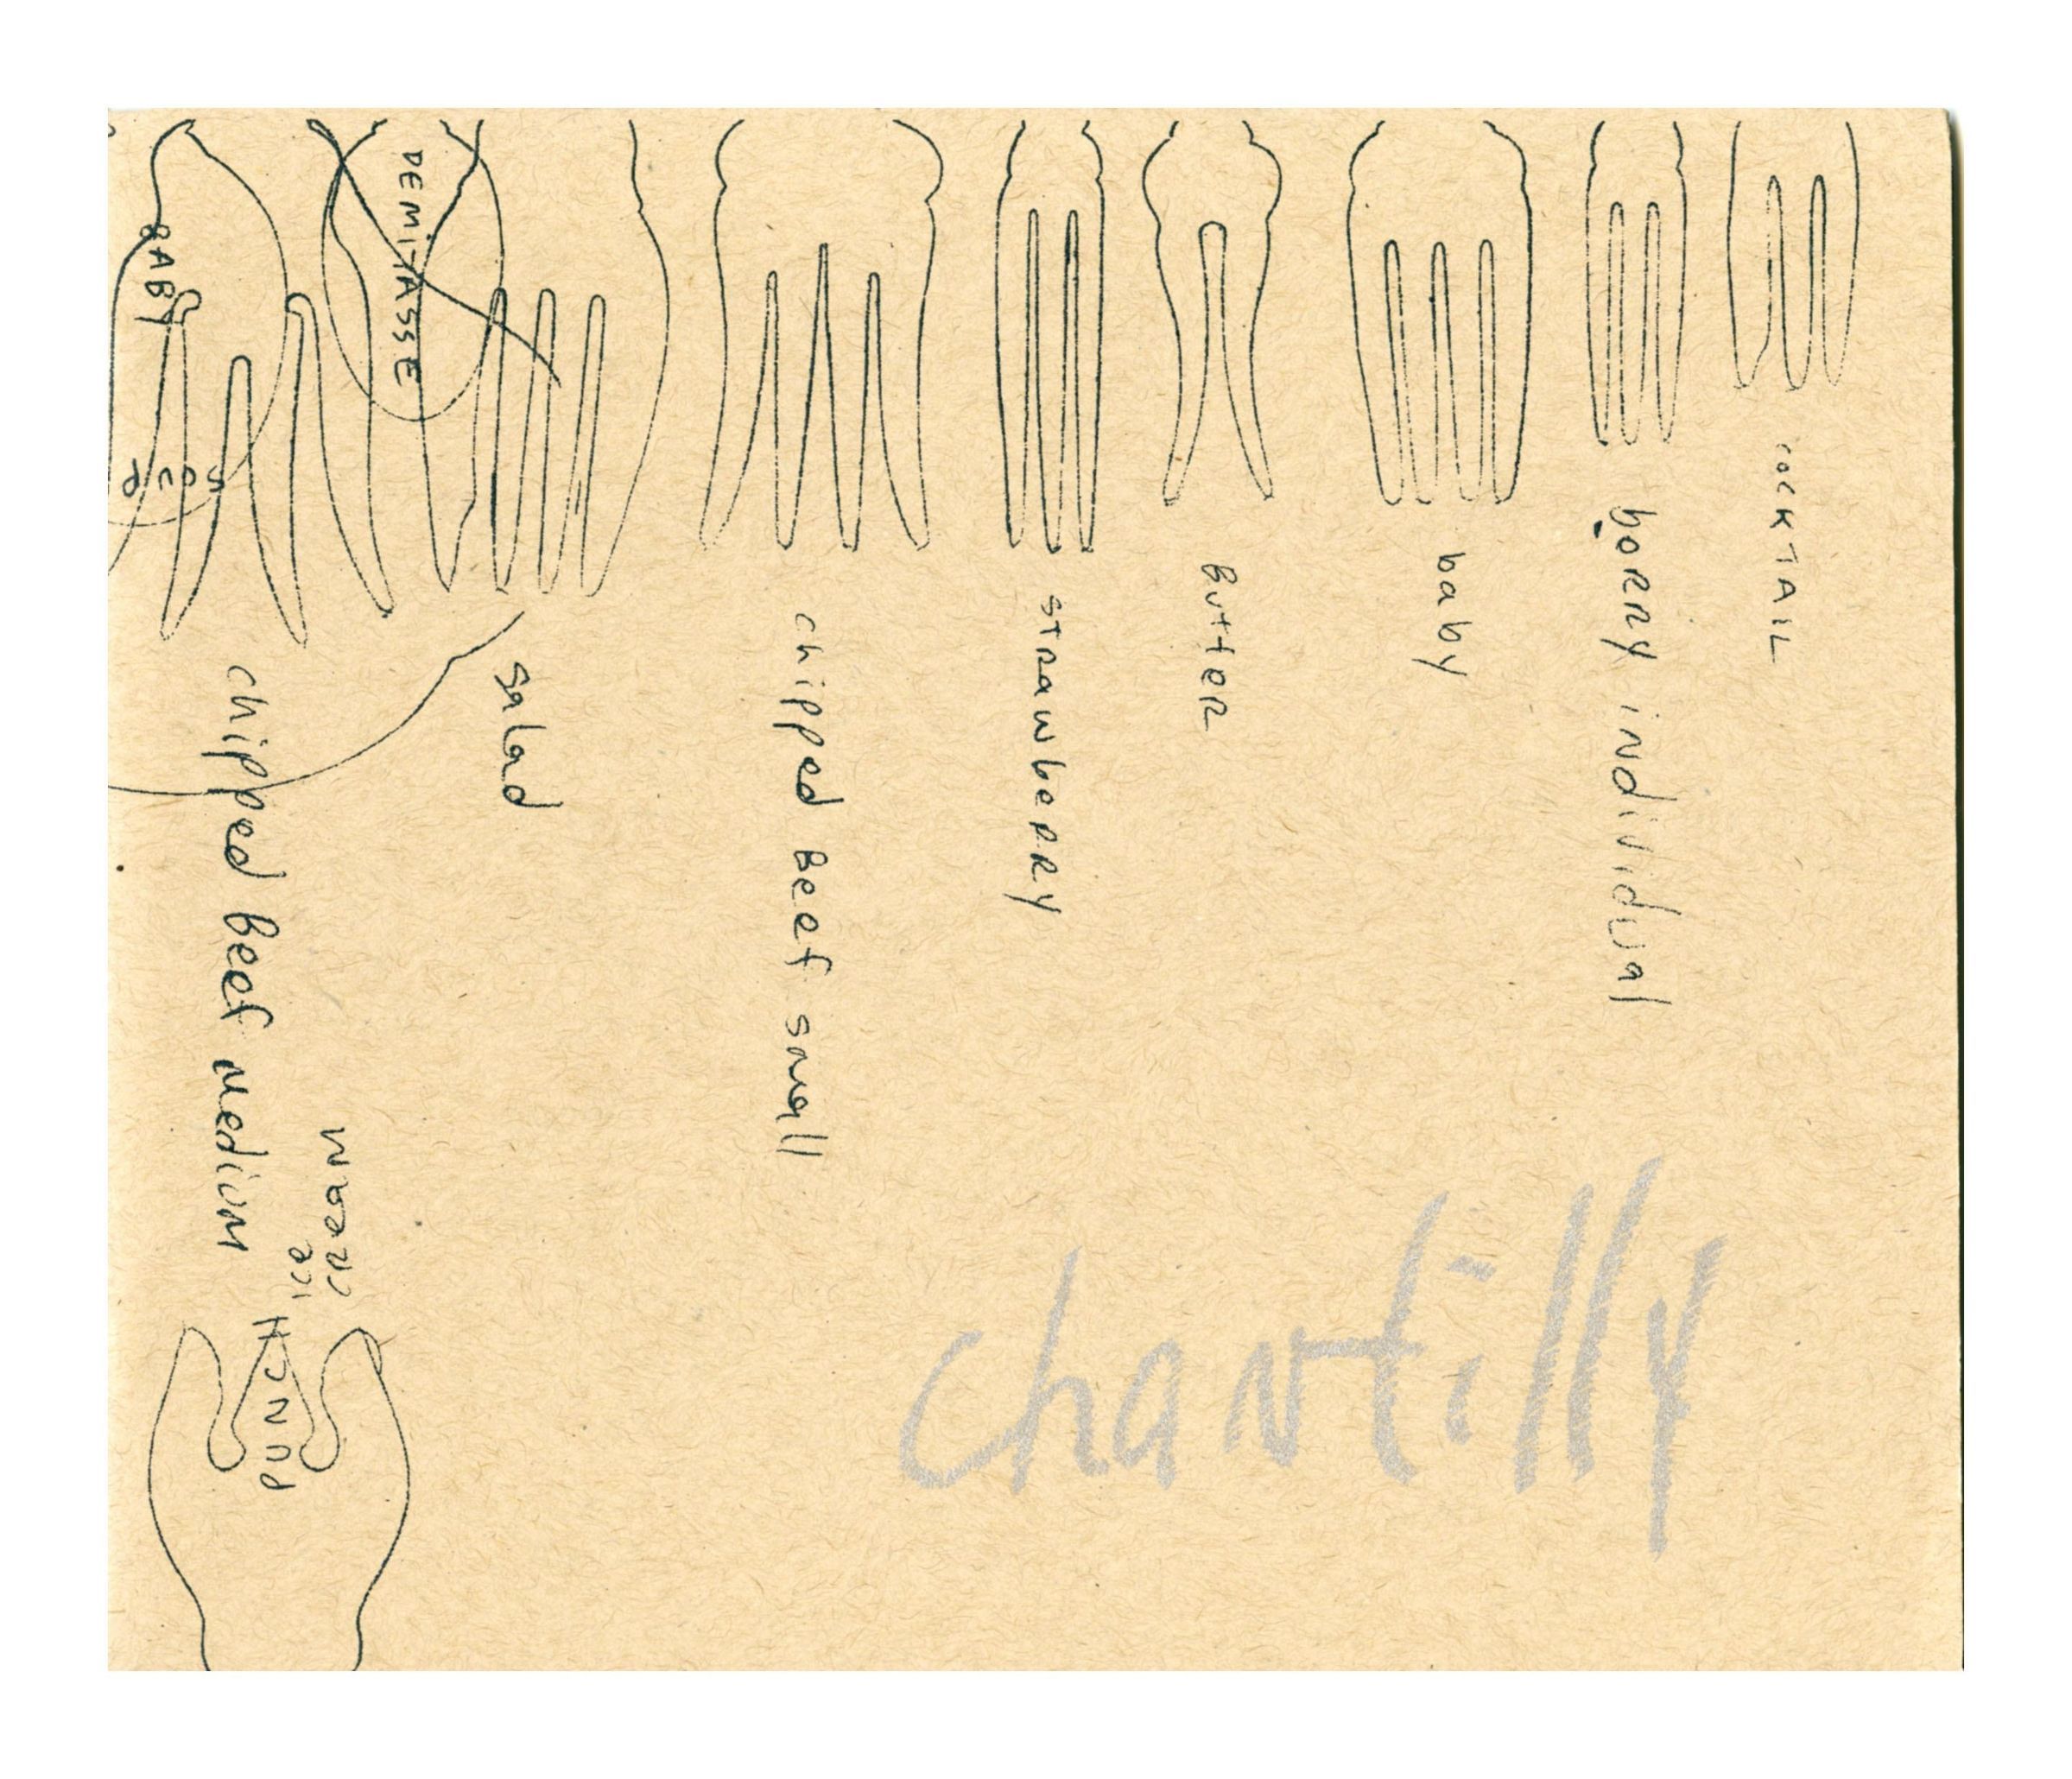 COCKTAIL
bORRy iNdividual
baby
ButtER
STRawbeRRy
chipped Beef small
salad
chipped beef Medium
DEMiTASSE
BABY
SOUP
CREAM
ice
PUNCH
chantilly